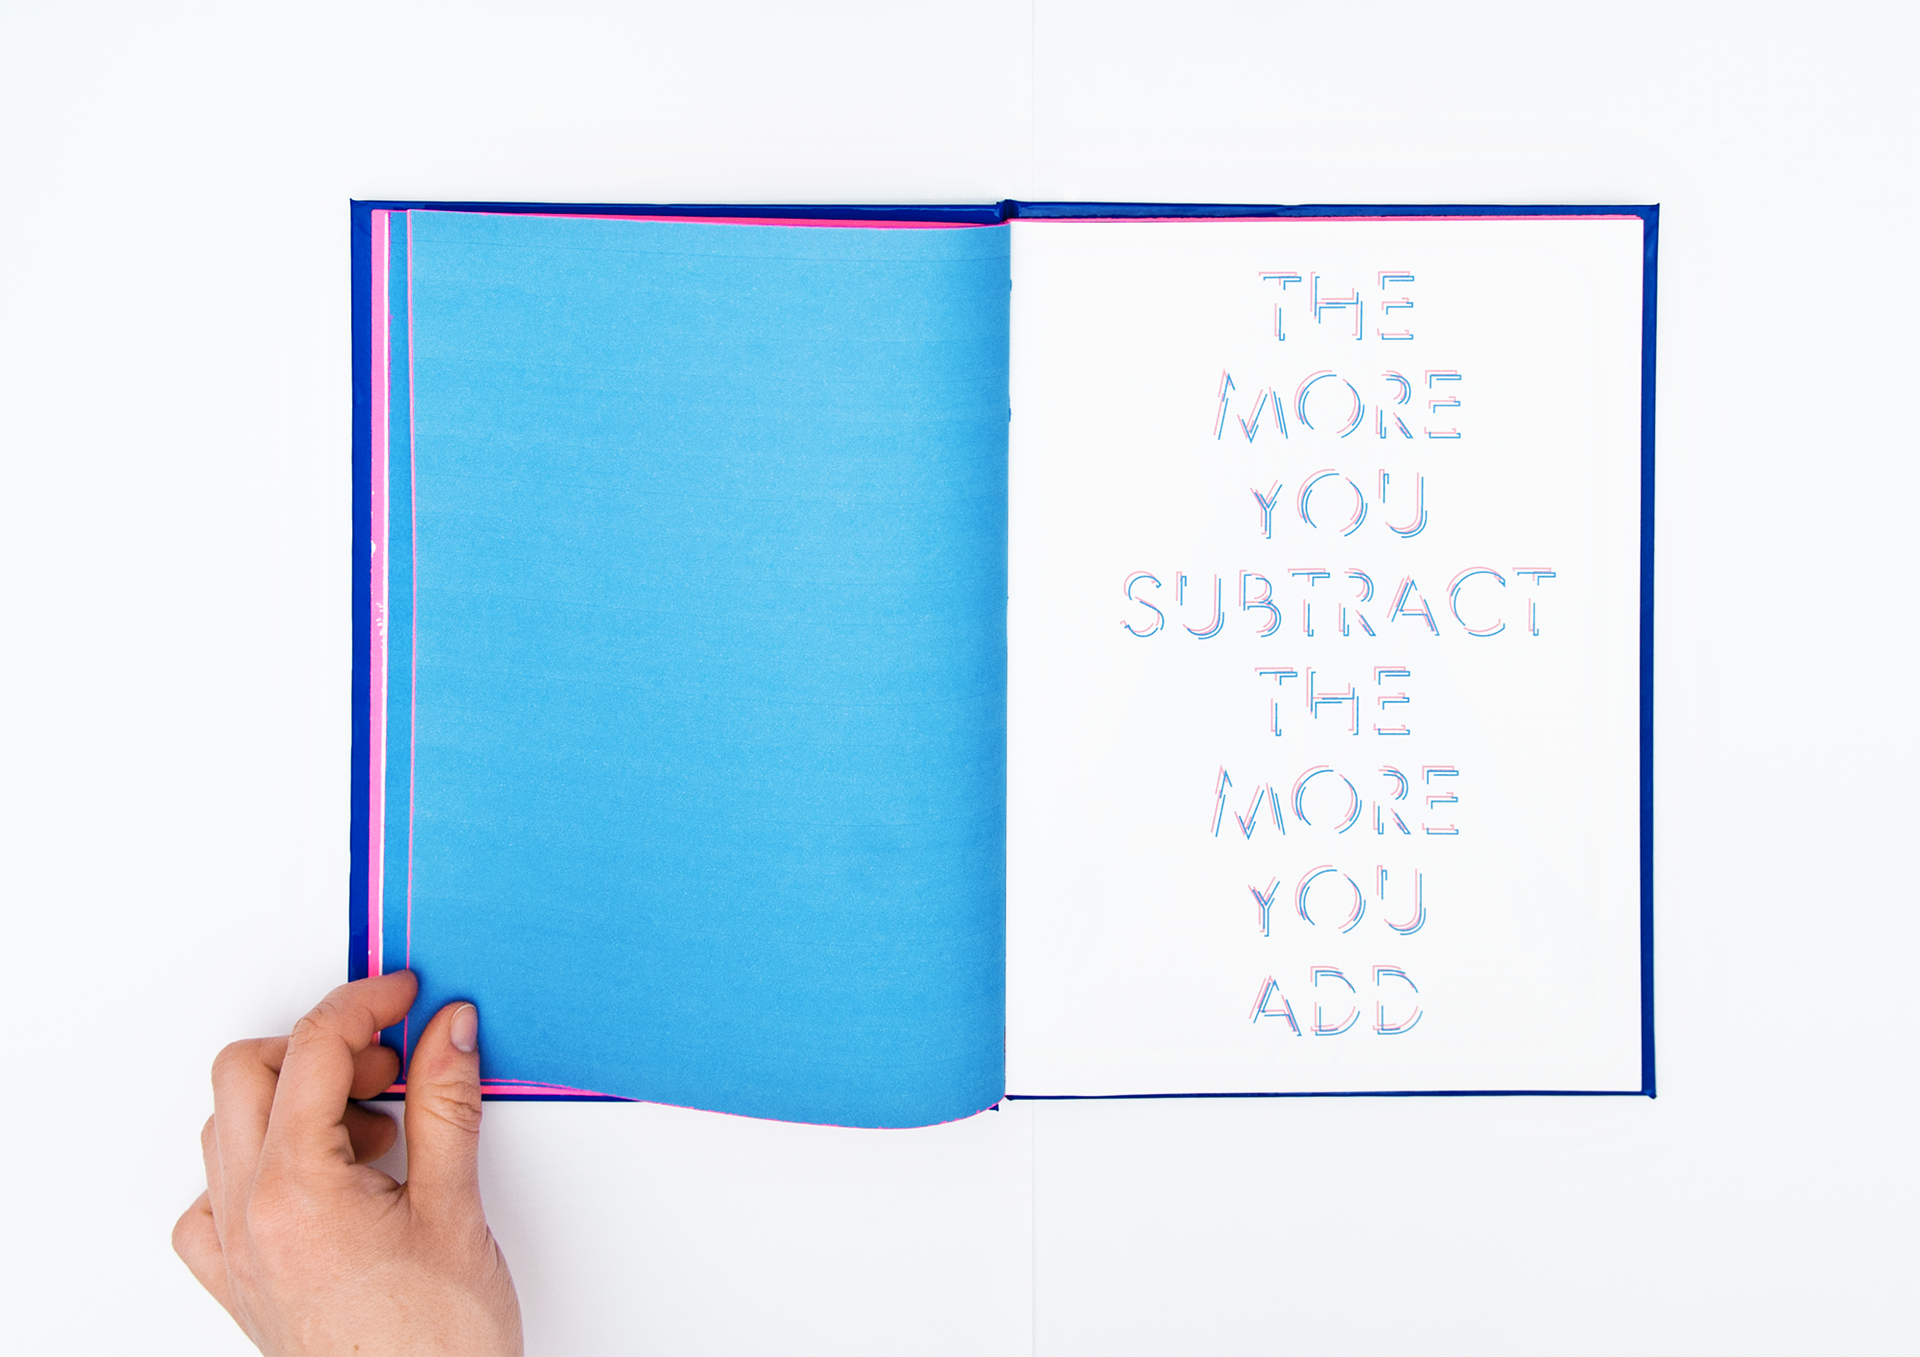 THE
MORE
YOU
SUBTRACT
THE
MORE
YOU
ADD